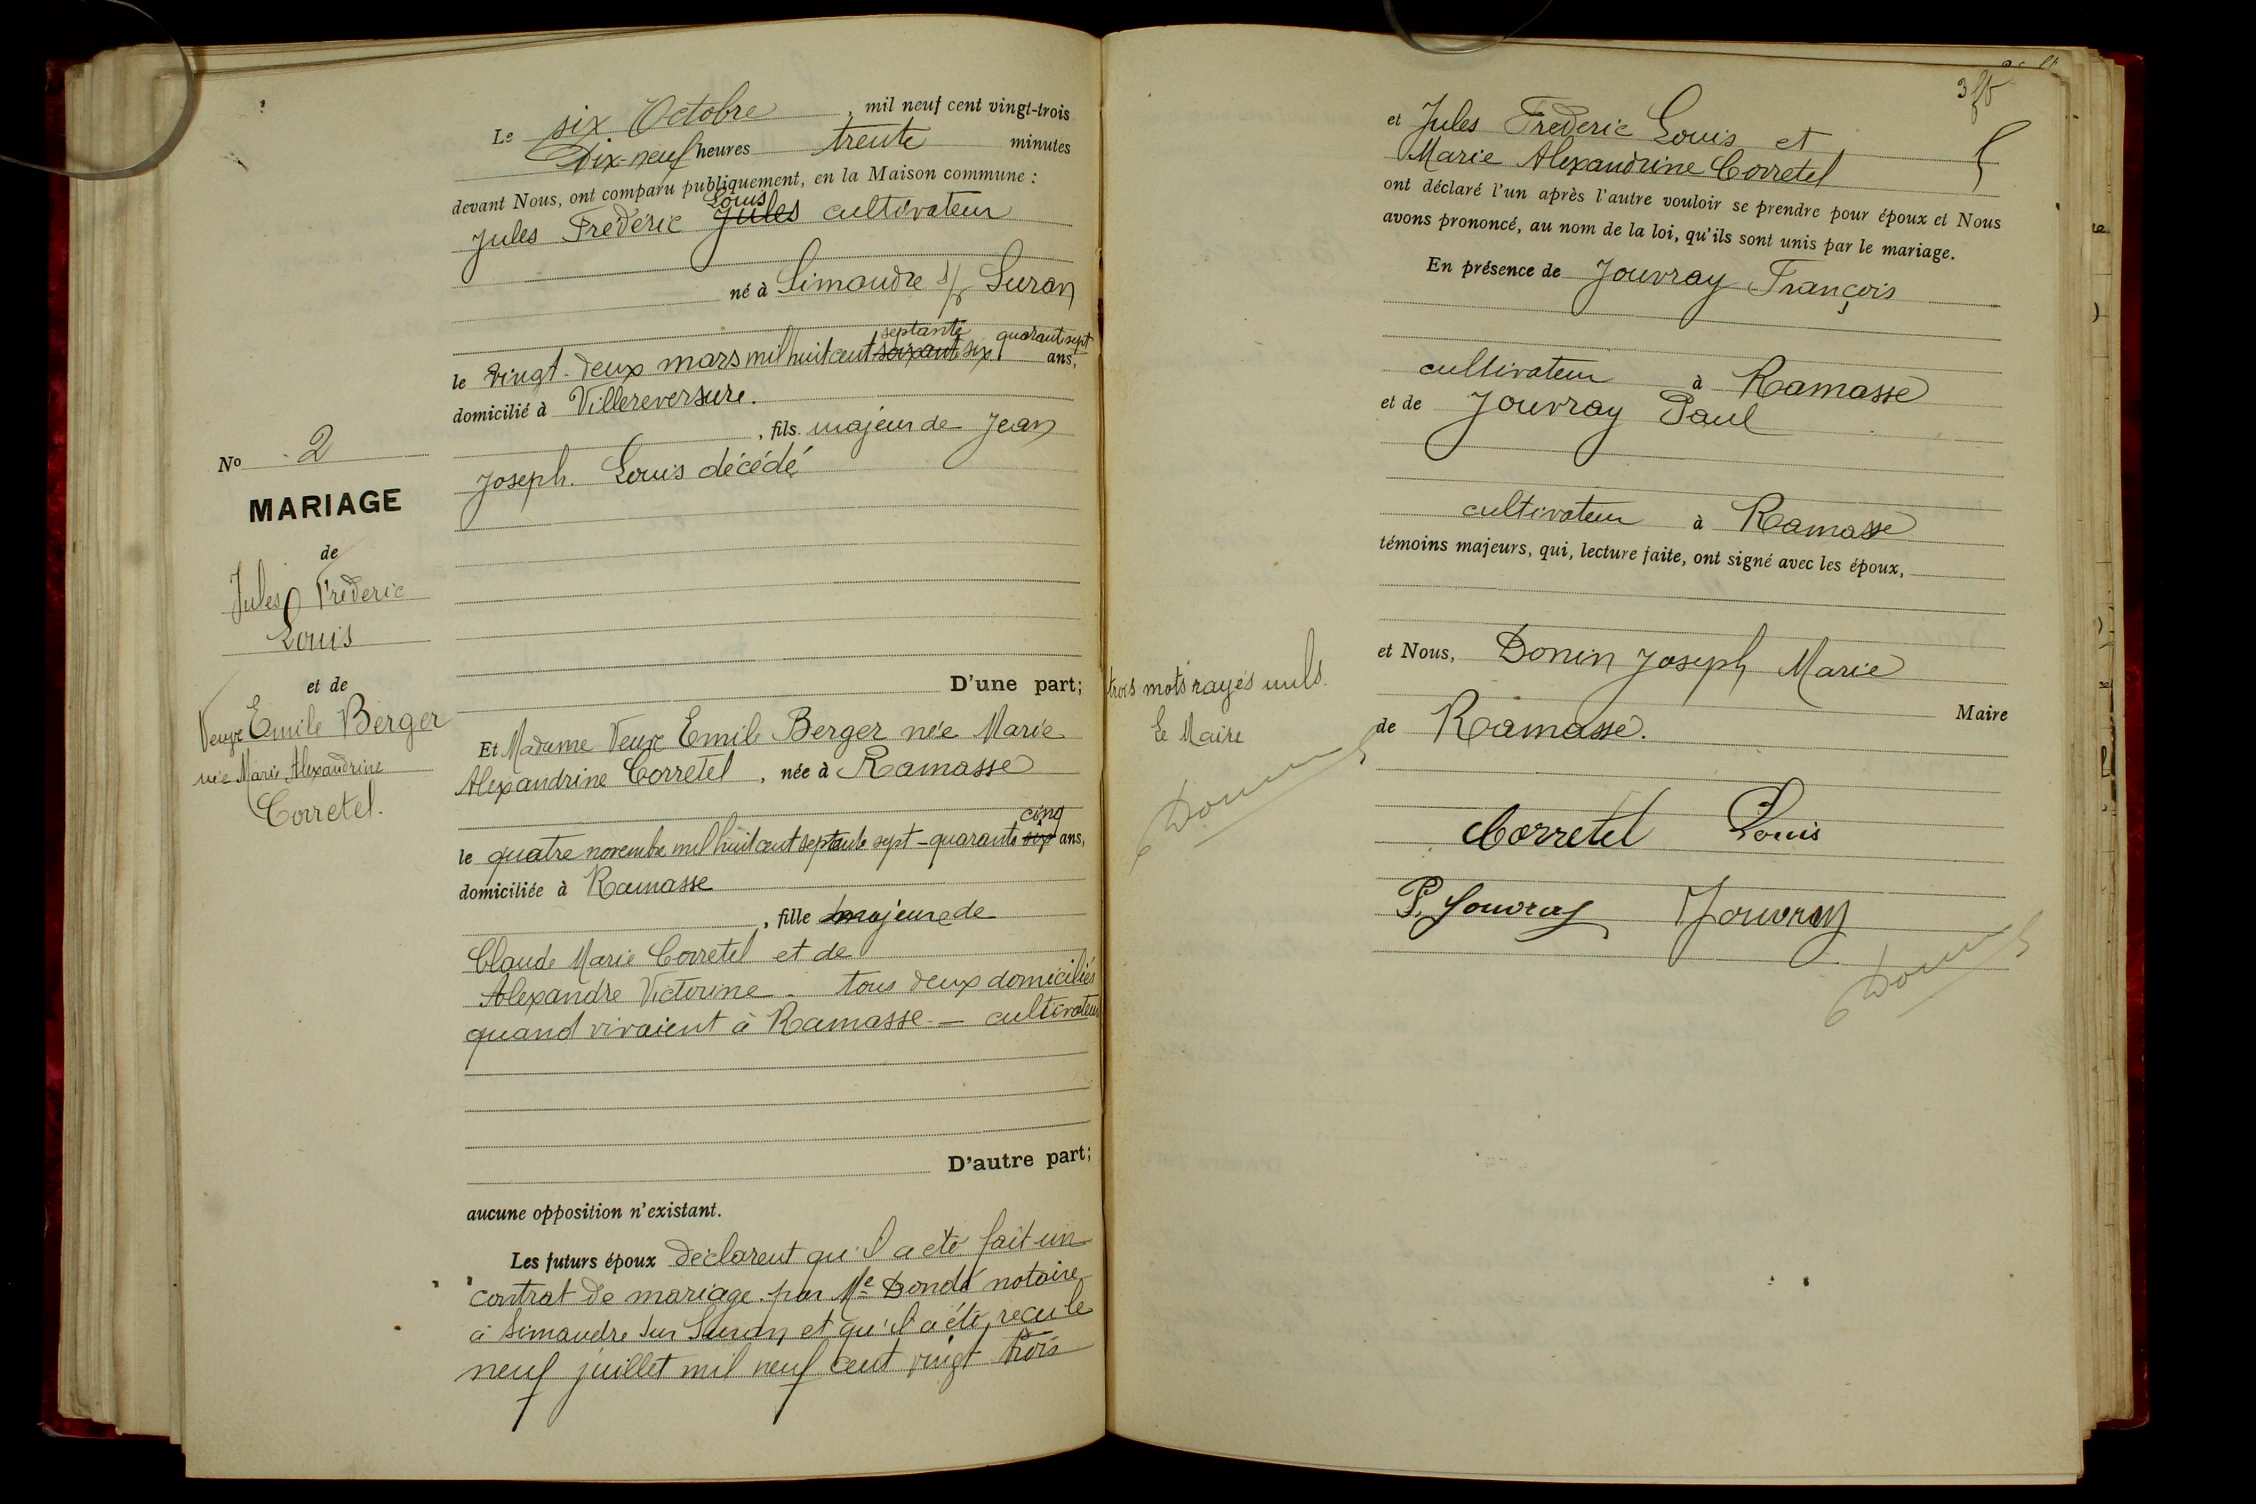 Le six Octobre, mil neuf cent vingt-trois
Dix-neuf heures trente minutes
devant Nous, ont comparu publiquement, en la Maison commune :
Louis
Jules Frédéric Jules cultivateur
né à Simandre s/ Suran
septante quarant sept
le vingt-deux mars mil huit cent soixant six ans,
domicilié à Villereversure.
, fils majeur de Jean
Joseph. Louis décédé
No 2
MARIAGE
de
Jules Fréderic
Louis
et de
Veuve Emile Berger
née Marie Alexandrine
Corretel.
D'une part;
Et Madame Veuve Emile Berger née Marie
Alexandrine Corretel, née à Ramasse
cinq
le quatre novembre mil huit cent septante sept - quarante six ans,
domiciliée à Ramasse
, fille majeure de
Claude Marie Corretel et de
Alexandre Victorine. tous deux domiciliés
quand vivaient à Ramasse. — cultivateurs
D'autre part;
aucune opposition n'existant.
Les futurs époux déclarent qu'il a été fait un
contrat de mariage par Me Dondé notaire
à Simandre sur Suran, et qu'il a été reçu le
neuf juillet mil neuf cent vingt trois
et Jules Frederic Louis et
Marie Alexandrine Corretel
ont déclaré l'un après l'autre vouloir se prendre pour époux et Nous
avons prononcé, au nom de la loi, qu'ils sont unis par le mariage.
En présence de Jouvray François
cultivateur à Ramasse
et de Jouvray Paul
cultivateur à Ramasse
témoins majeurs, qui, lecture faite, ont signé avec les époux,
et Nous, Donin Joseph Marie
Maire
de Ramasse.
trois mots rayés nuls.
Le Maire
Donin
Corretel Louis
P. Jouvray Jouvray
Donin